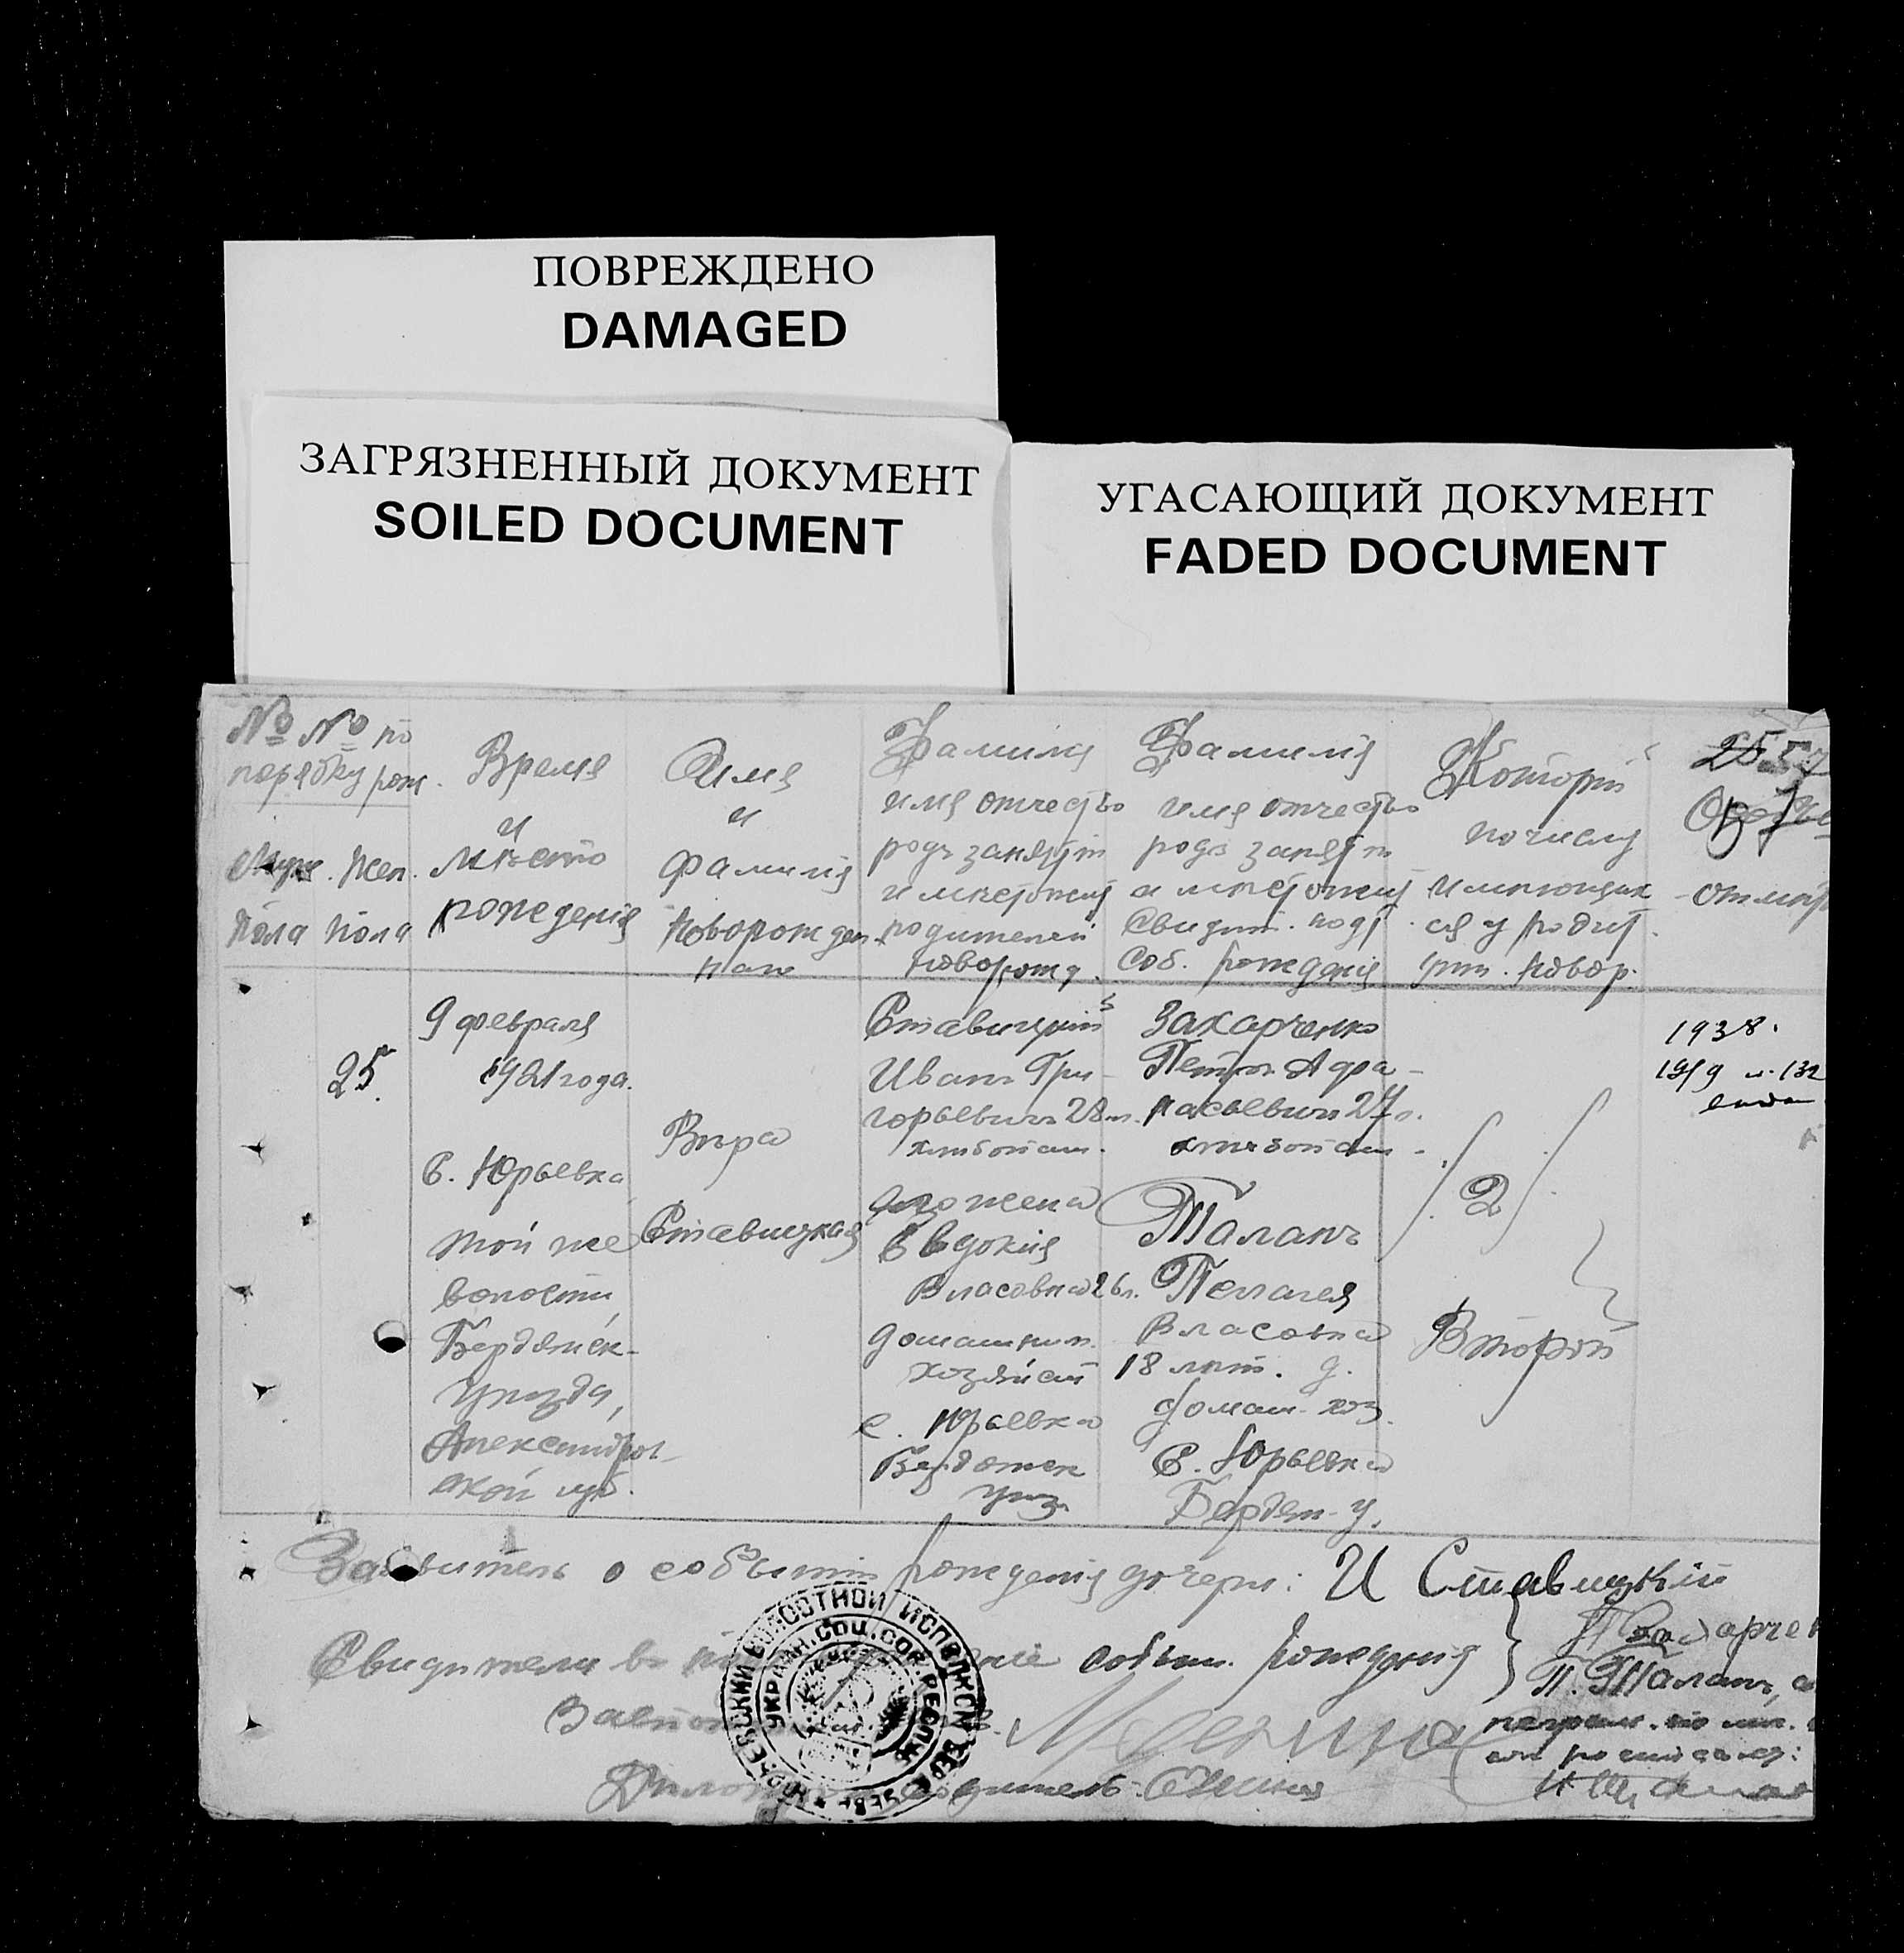 ПОВРЕЖДЕНО
DAMAGED
ЗАГРЯЗНЕННЫЙ ДОКУМЕНТ
SOILED DOCUMENT
УГАСАЮЩИЙ ДОКУМЕНТ
FADED DOCUMENT
№ № по
порядку рож.
Муж. Жен.
пола пола
Время
и
мѣсто
рожденія
Имя
и
фамилія
новорожден
наго
Фамилія
имя отчество
родъ занятій
и мѣстожит
родителей
новорожд.
Фамилія
имя отчество
родъ занятій
и мѣстожит
свидѣт. подт
соб. рожденія
Который
по числу
имѣющих
ся у родит.
дѣт. новор.
отмѣт
25.
9 февраля
1921 года.
С. Юрьевка
той же
волости
Бердянск-
уѣзда,
Александров-
ской губ.
Вѣра
Ставицкая
Ставицкій
Иванъ Гри-
горьевичъ 28 л.
хлѣбопаш.
его жена
Евдокія
Власовна 26 л.
домашнил.
хозяйст
с. Юрьевка
Бердянск
уѣз.
Захарченко
Петръ Афа-
насьевичъ 27 л.
хлѣбопаш.
Таланъ
Пелагея
Власовна
18 лѣт. д.
домаш. хоз.
С. Юрьевка
Бердян. у.
2
Второй
1938.
19/9 н. 132
Заявитель о событіи рожденія дочери: И Ставицкій
Свидѣтели въ событ. рожденія
П Захарче
П. Таланъ,
неграм.
росписался:
ЮРЬЕВСКИЙ ВОЛОСТНОЙ ИСПОЛКОМ
УКРАИН. СОЦ. СОВ. РЕСПУБ.